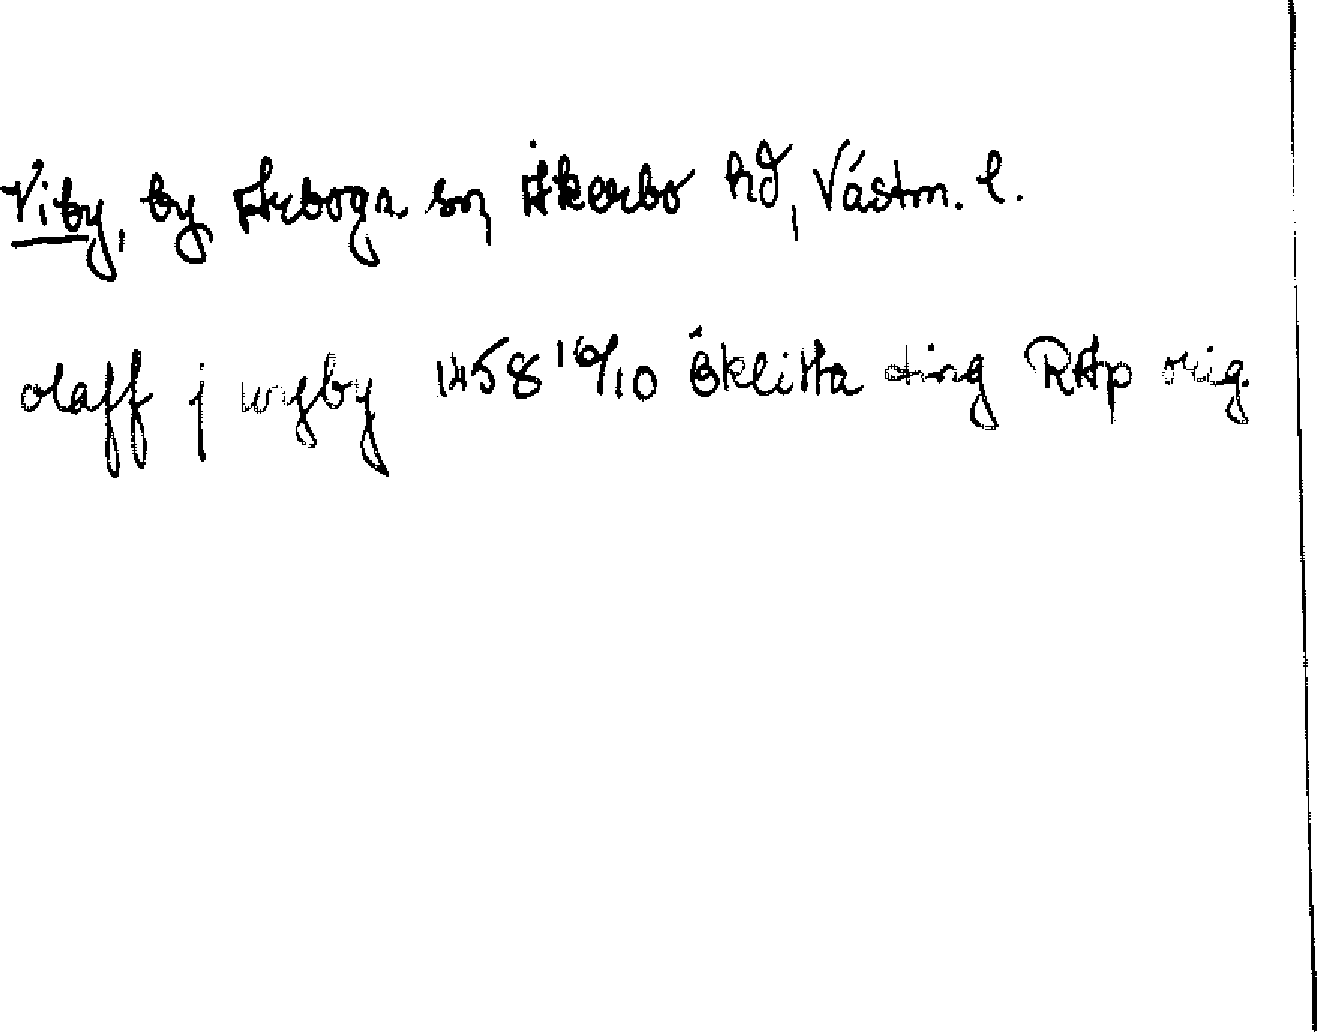 Viby, by Arboga sn, Åkerbo hd, Västm. l.
olaff j wyby 1458 16/10 Öklista ting RAp orig.